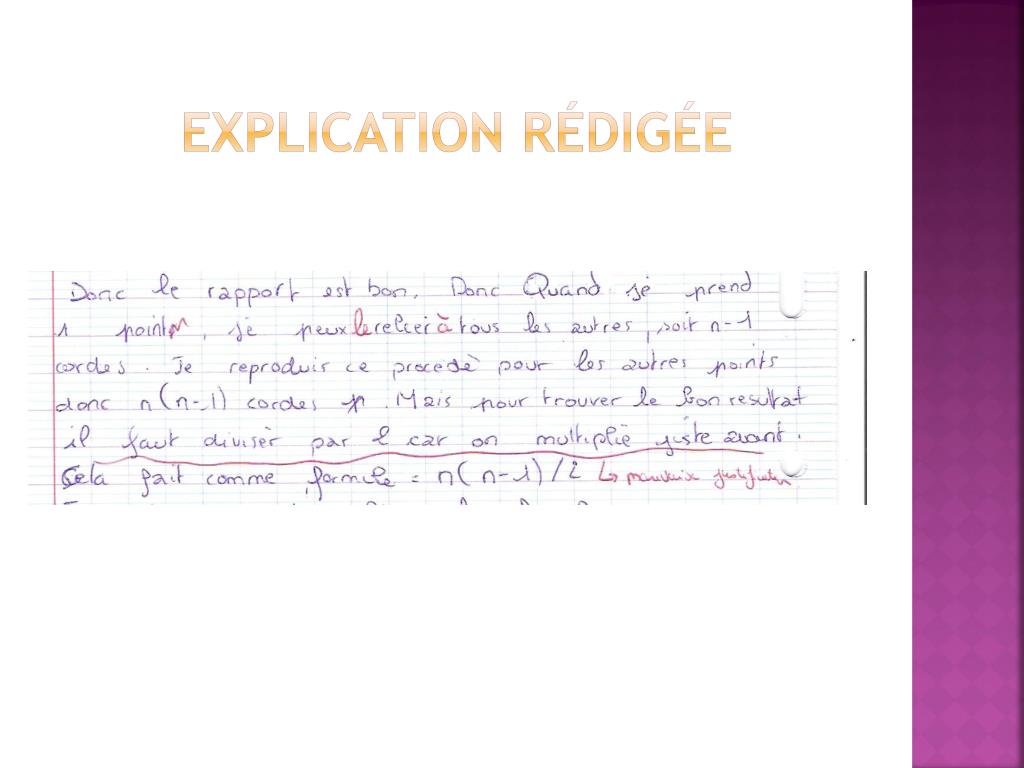 EXPLICATION RÉDIGÉE
Donc le rapport est bon. Donc Quand je prend
1 point, je peux le relier à tous les autres, soit n-1
cordes. Je reproduis ce procedè pour les autres points
donc n(n-1) cordes. Mais pour trouver le bon resultat
il faut divisèr par 2 car on multipliè juste avant.
Cela fait comme formule = n(n-1)/2 ↳ mauvaise justification